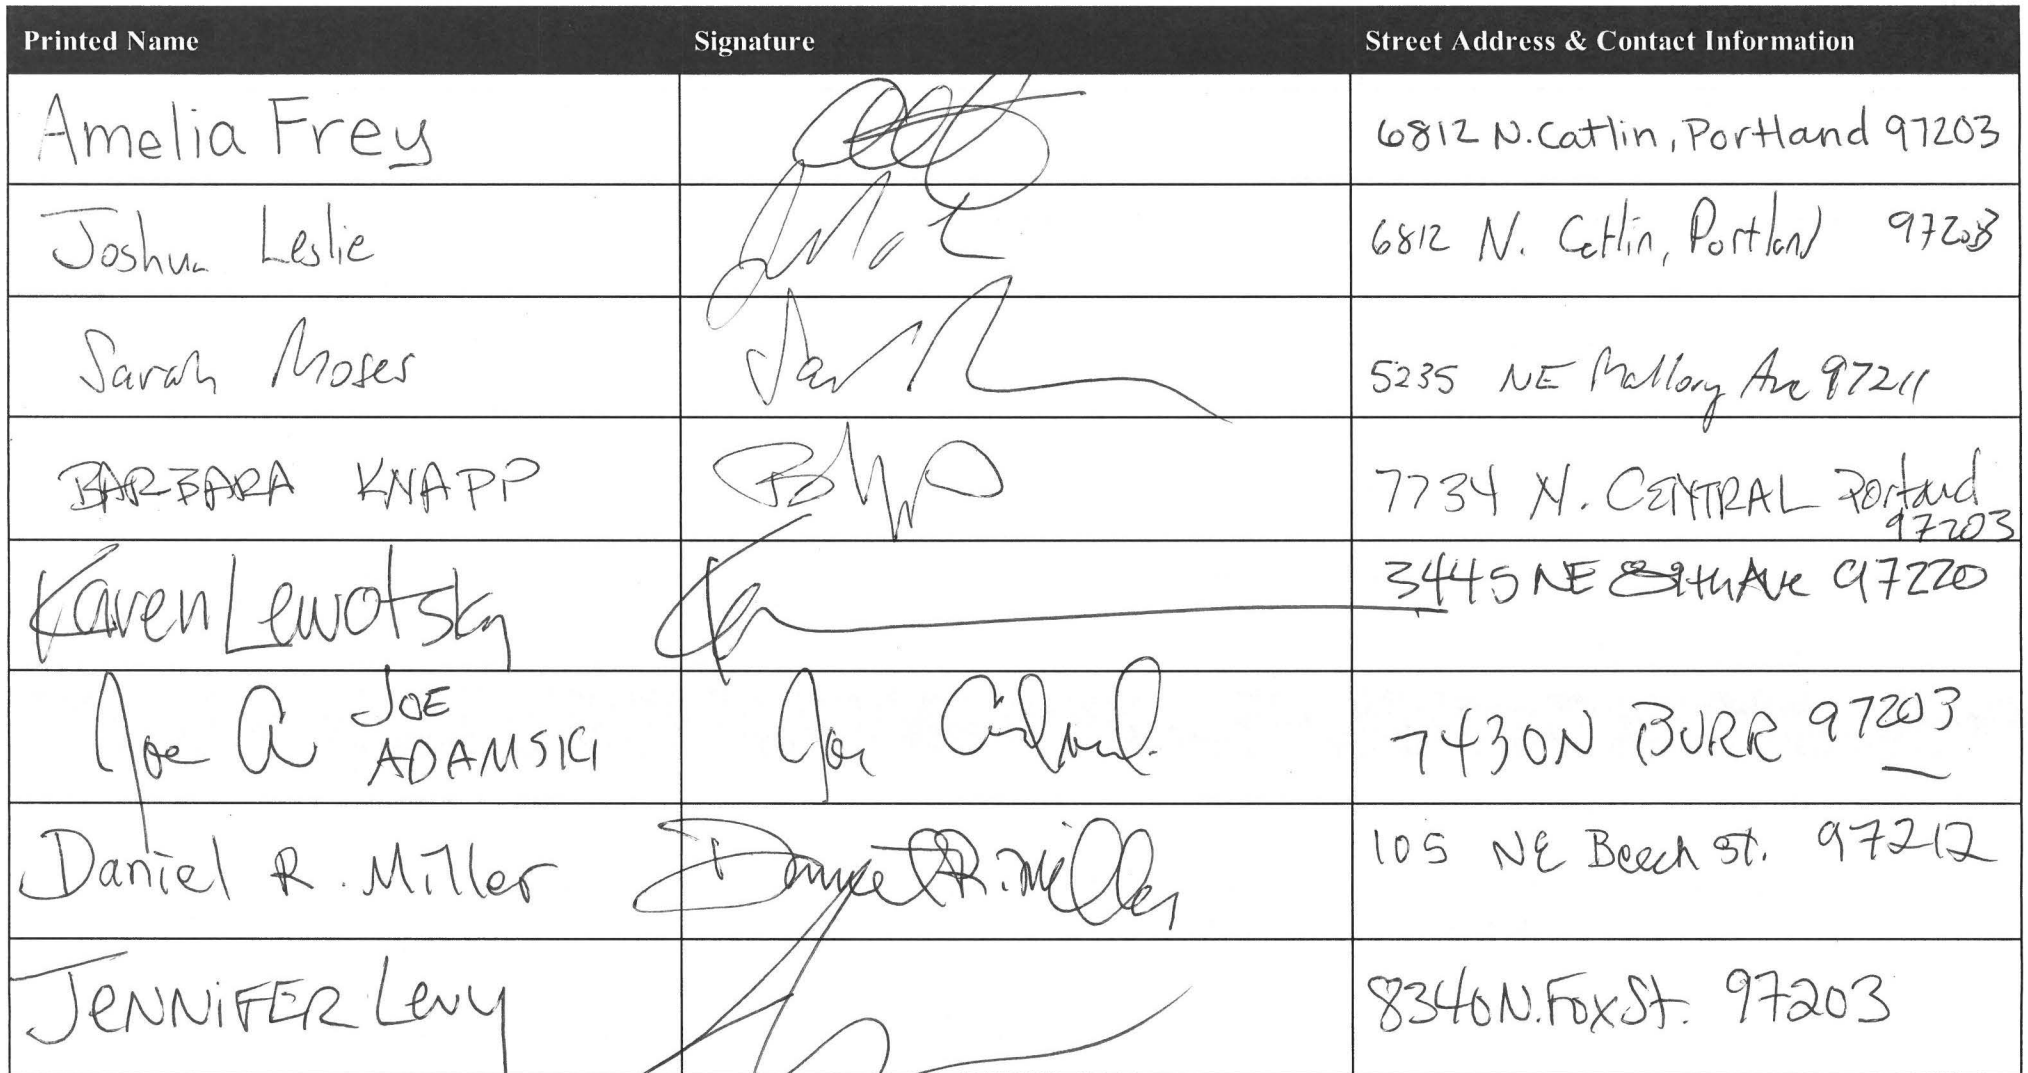 Printed Name Signature Street Address & Contact Information
Amelia Frey 6812 N. Catlin, Portland 97203
Joshua Leslie 6812 N. Catlin, Portland 97203
Sarah Moser 5235 NE Mallory Ave 97211
BARBARA KNAPP 7734 N. CENTRAL Portland
97203
Karen Lewotsky 3445 NE Ave 97220
Joe A JOE
ADAMSKI Joe 7430 N BURR 97203
Daniel R. Miller Daniel R. Miller 105 NE Beech St. 97212
JENNIFER Levy 8340 N. Fox St. 97203